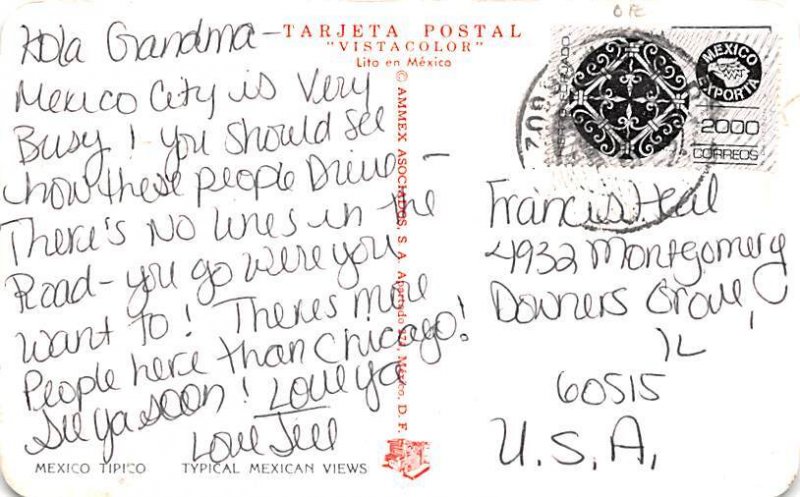 TARJETA POSTAL
"VISTACOLOR"
Lito en México
Hola Grandma -
Mexico City is Very
Busy! you should see
how these people Drive -
There's No lines in the
Road - you go were you
want to! Theres more
People here than Chicago!
See ya soon! Love ya
Love Jill
MEXICO TIPICO TYPICAL MEXICAN VIEWS
© AMMEX ASOCIADOS, S. A. Apartado México, D. F.
MEXICO
EXPORTA
2000
CORREOS
Francis Heil
4932 Montgomery
Downers Grove,
IL
60515
U.S.A.